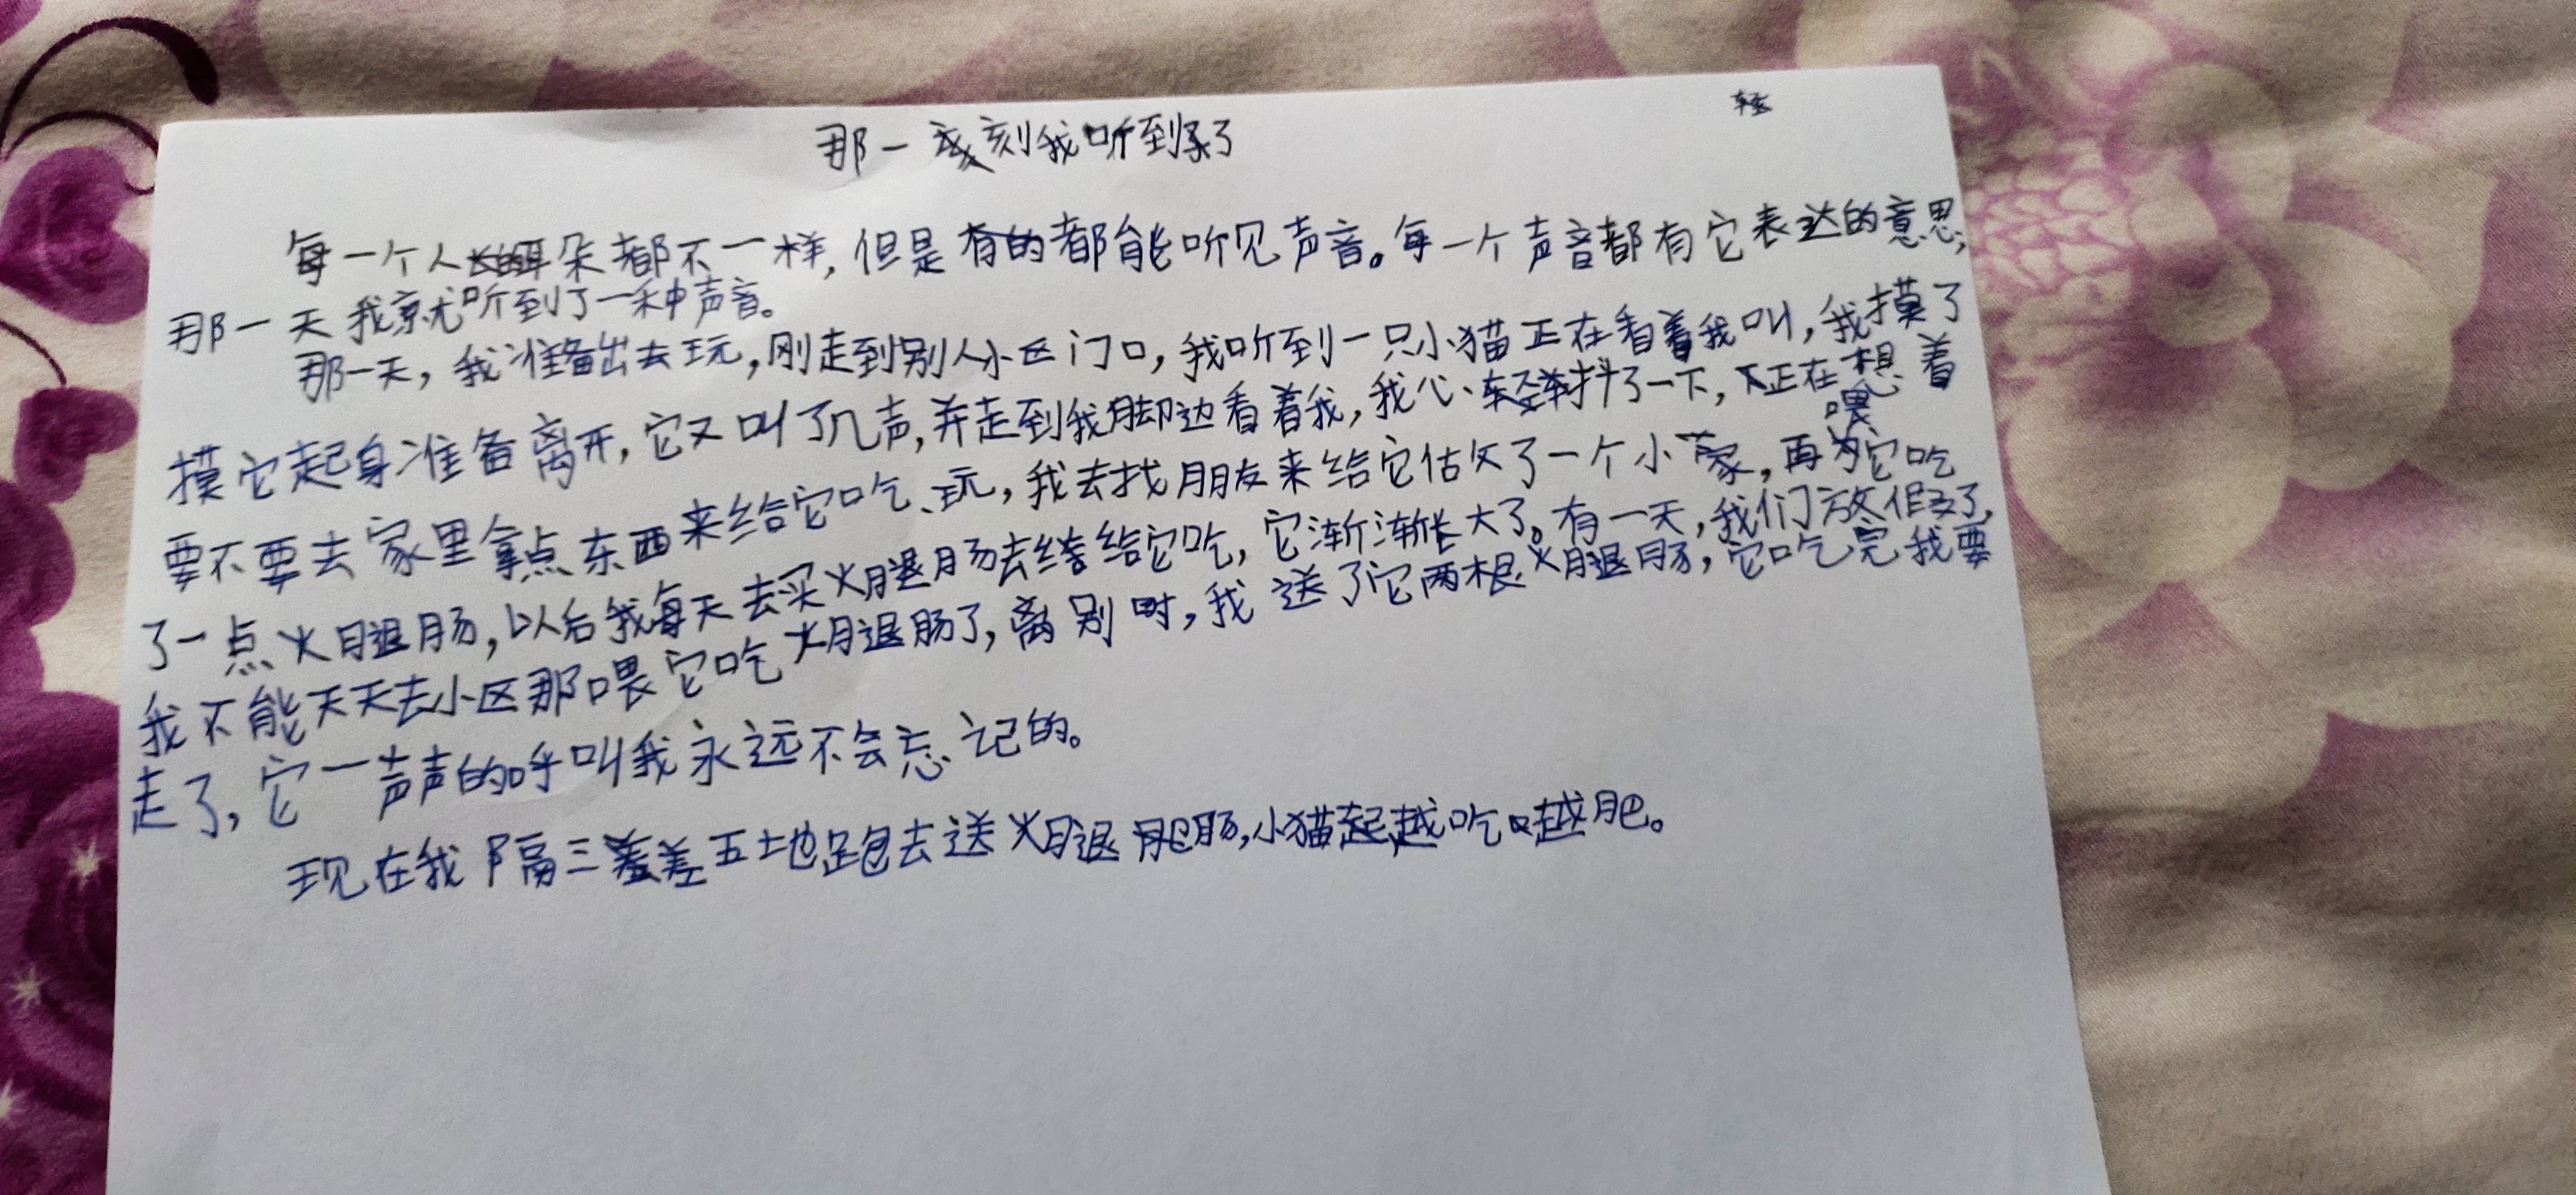 轻
那一刻我听到了
每一个人长的耳朵都不一样,但是有的都能听见声音。每一个声音都有它表达的意思,
那一天我就听到了一种声音。
那一天,我准备出去玩,刚走到别人小区门口,我听到一只小猫正在看着我叫,我摸了
摸它起身准备离开,它又叫了几声,并走到我脚边看着我,我心轻抖了一下,正在想着
要不要去家里拿点东西来给它吃、玩,我去找朋友来给它估文了一个小家,再喂它吃
了一点火腿肠,以后我每天去买火腿肠去给它吃,它渐渐长大了。有一天,我们放假了,
我不能天天去小区那喂它吃火腿肠了,离别时,我送了它两根火腿肠,它吃完我要
走了,它一声声的呼叫我永远不会忘记的。
现在我隔三差五地跑去送火腿肠,小猫越吃越肥。